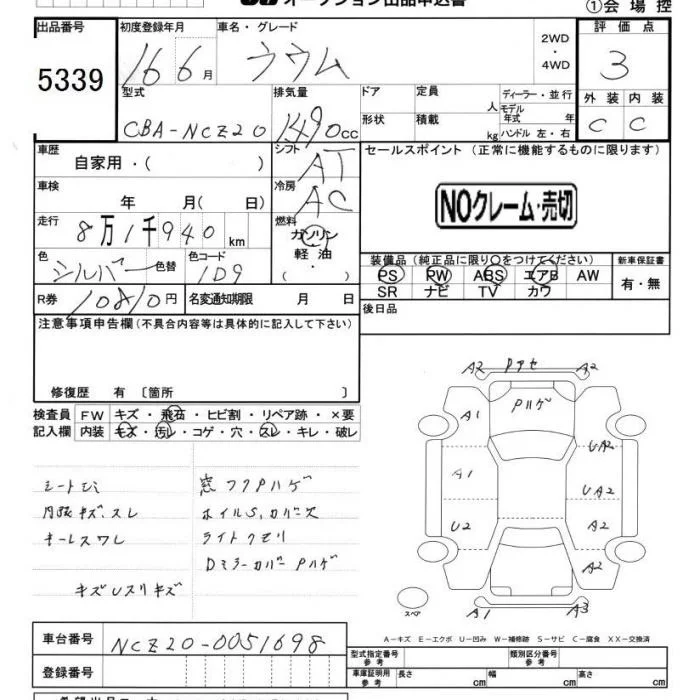 オークション出品申込書
①会場控
出品番号 初度登録年月 車名・グレード 2WD・4WD 評価点
5339 16 6月 ラウム 3
型式 排気量 ドア 定員 人 ディーラー・並行 外装 内装
CBA-NCZ20 1490cc 形状 積載 kg モデル年式 年 ハンドル 左・右 C C
車歴 自家用・( ) シフト AT セールスポイント (正常に機能するものに限ります)
車検 年 月( 日) 冷房 AC NOクレーム・売切
走行 8万1千940km 燃料 ガソリン・軽油・( )
色 シルバー 色替 色コード 1D9 装備品(純正品に限り○をつけてください) 新車保証書
PS PW ABS エアB AW 有・無
SR ナビ TV カワ
R券 10810円 名変通知期限 月 日 後日品
注意事項申告欄(不具合内容等は具体的に記入して下さい)
修復歴 有〔箇所 〕
検査員 FW キズ・飛石・ヒビ割・リペア跡・×要
記入欄 内装 キズ・汚レ・コゲ・穴・スレ・キレ・破レ
シートシミ 窓フクPハゲ
内張キズ、スレ ホイルS,カバー欠
キーレスワレ ライトクモリ
DミラーカバーPハゲ
キズUスリキズ
A2 Pアセ A2
Pハゲ
A1
UA2
A1
UA2
U2
A2
A2
スペア A1 A3
A-キズ E-エクボ U-凹み W-補修跡 S-サビ C-腐食 XX-交換済
車台番号 NCZ20-0051698
型式指定番号 参考 類別区分番号 参考
登録番号 車庫証明用 参考 長さ cm 幅 cm 高さ cm